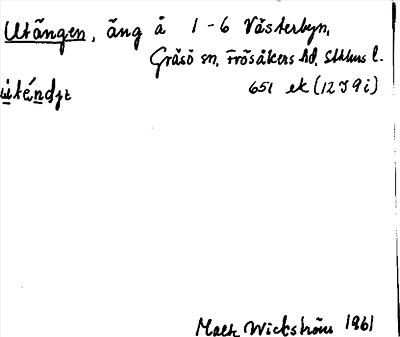 Utängen, äng å 1-6 Västerbyn,
Gräsö sn, Frösåkers hd, Sthlms l.
651 ek (12I9i)
Wickström 1961